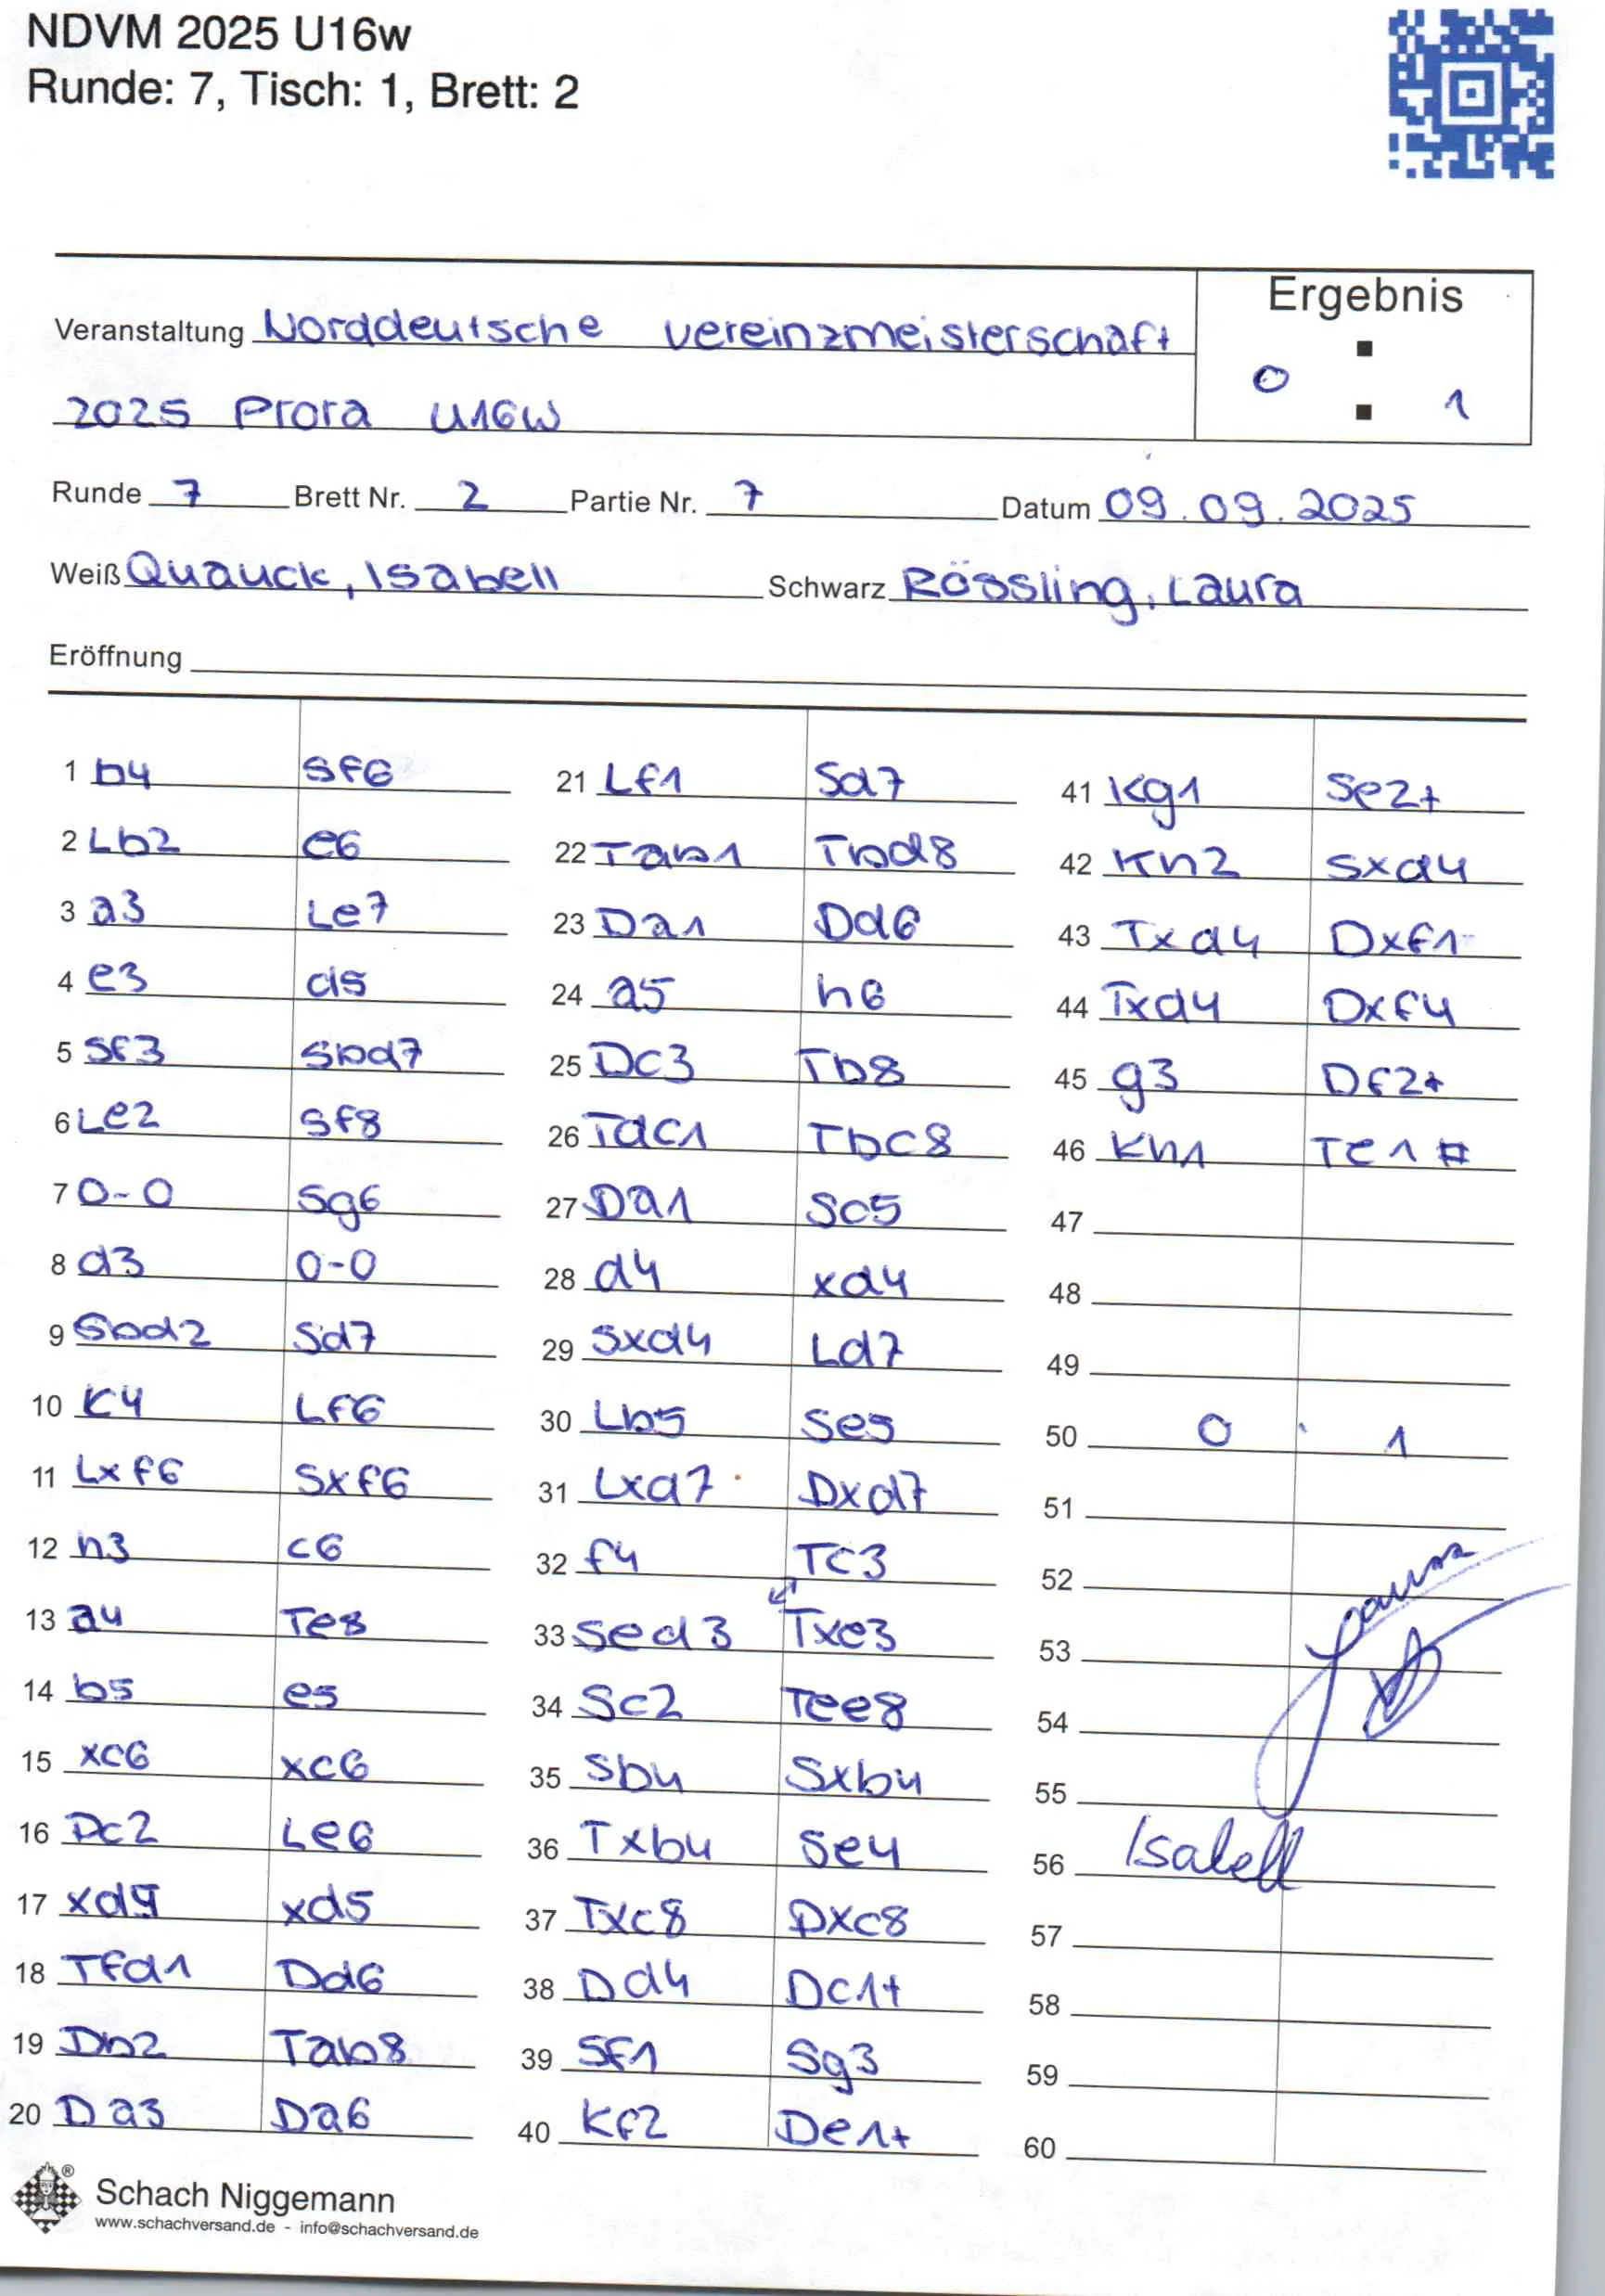 NDVM 2025 U16w
Runde: 7, Tisch: 1, Brett: 2
Ergebnis
Veranstaltung Norddeutsche vereinzmeisterschaft
0 : 1
2025 Prora U16W
Runde 7 Brett Nr. 2 Partie Nr. 7 Datum 09.09.2025
Weiß Quauck, Isabell Schwarz Rössling, Laura
Eröffnung
1 b4 Sf6
2 Lb2 e6
3 a3 Le7
4 e3 d5
5 Sf3 Sbd7
6 Le2 Sf8
7 0-0 Sg6
8 d3 0-0
9 Sbd2 Sd7
10 K4 Lf6
11 Lxf6 Sxf6
12 h3 c6
13 a4 Te8
14 b5 e5
15 xc6 xc6
16 Dc2 Le6
17 xd5 xd5
18 Tfd1 Dd6
19 Db2 Tab8
20 Da3 Da6
21 Lf1 Sd7
22 Tab1 Tbd8
23 Da1 Dd6
24 a5 h6
25 Dc3 Tb8
26 Tdc1 Tbc8
27 Da1 Sc5
28 d4 xd4
29 Sxd4 Ld7
30 Lb5 Se5
31 Lxd7 Dxd7
32 f4 Tc3
33 Sed3 Txe3
34 Sc2 Tee8
35 Sb4 Sxb4
36 Txb4 Se4
37 Txc8 Dxc8
38 Dd4 Dc1+
39 Sf1 Sg3
40 Kf2 De1+
41 Kg1 Se2+
42 Kh2 Sxd4
43 Txd4 Dxf1
44 Txd4 Dxf4
45 g3 Df2+
46 Kh1 Te1#
47
48
49
50 0 : 1
51
52
53
54
55
56
57
58
59
60
Laura
Isabell
Schach Niggemann
www.schachversand.de - info@schachversand.de